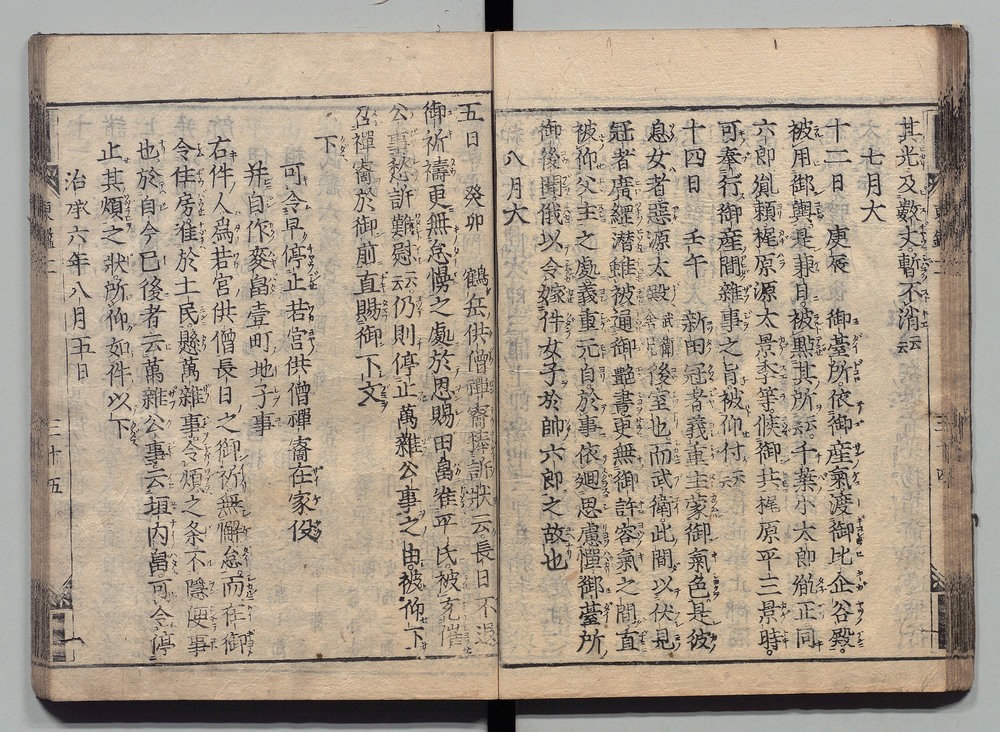 其光及数丈暫不消云云
七月大
十二日庚辰御臺所依御産氣渡御比企谷殿
被用御輿是兼日被點其所云云千葉小太郎胤正同
六郎胤頼梶原源太景季等候御共梶原平三景時
可奉行御産間雜事之旨被仰付云云
十四日壬午新田冠者義重主蒙御氣色是彼
息女者惡源太殿武衛舎兄後室也而武衛此間以伏見
冠者廣綱潜雖被通御艶書更無御許容氣之間直
被仰父主之處義重元自於事依廻思慮憚御臺所
御後聞俄以令嫁件女子於帥六郎之故也
八月大
五日癸卯鶴岳供僧禪睿捧訴狀云長日不退
御祈禱更無怠慢之處於恩賜田畠准平民被充催
公事愁訴難慰云云仍則停止萬雜公事之由被仰下
召禪睿於御前直賜御下文
下
可令早停止若宮供僧禪睿在家役
并自作麥畠壹町地子事
右件人爲若宮供僧長日之御祈無懈怠而在御
令住房准於土民懸萬雜事令煩之条不隱便事
也於自今已後者云萬雜公事云垣内畠可令停
止其煩之狀所仰如件以下
治承六年八月五日
東鑑二
三十四
東鑑二
三十五